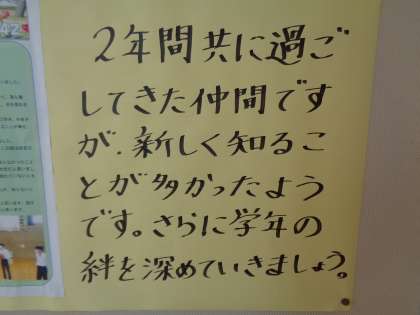 2年間共に過ご
してきた仲間です
が、新しく知るこ
とが多かったよう
です。さらに学年の
絆を深めていきましょう。